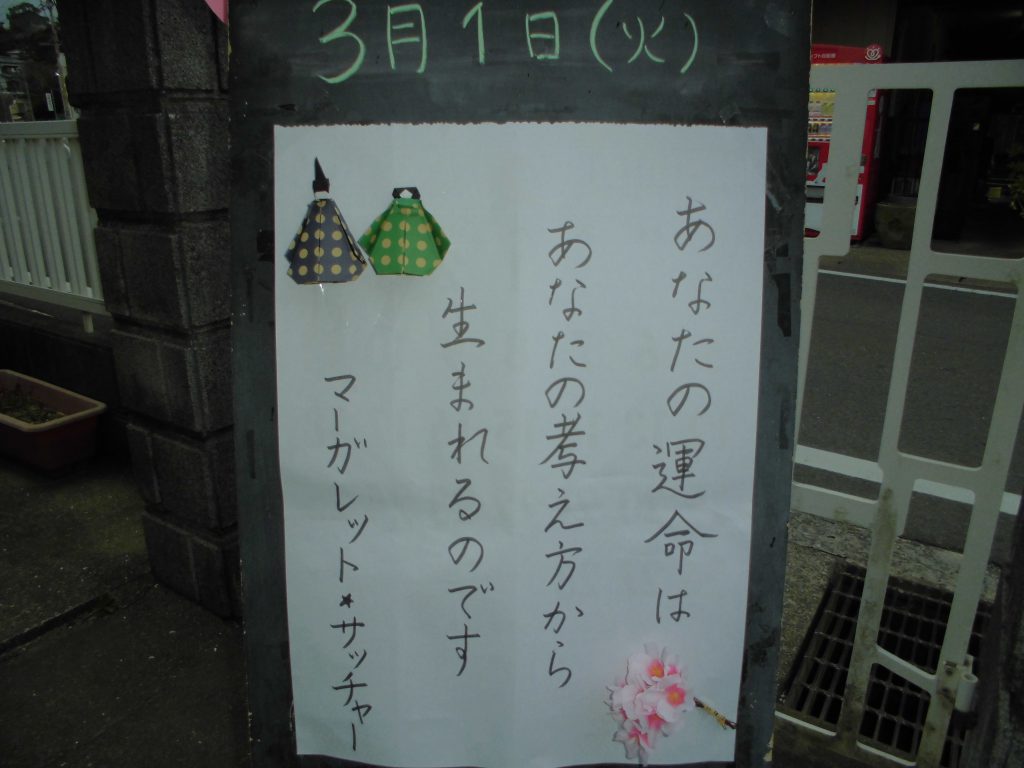 3月1日(火)
あなたの運命は
あなたの考え方から
生まれるのです
マーガレット★サッチャー